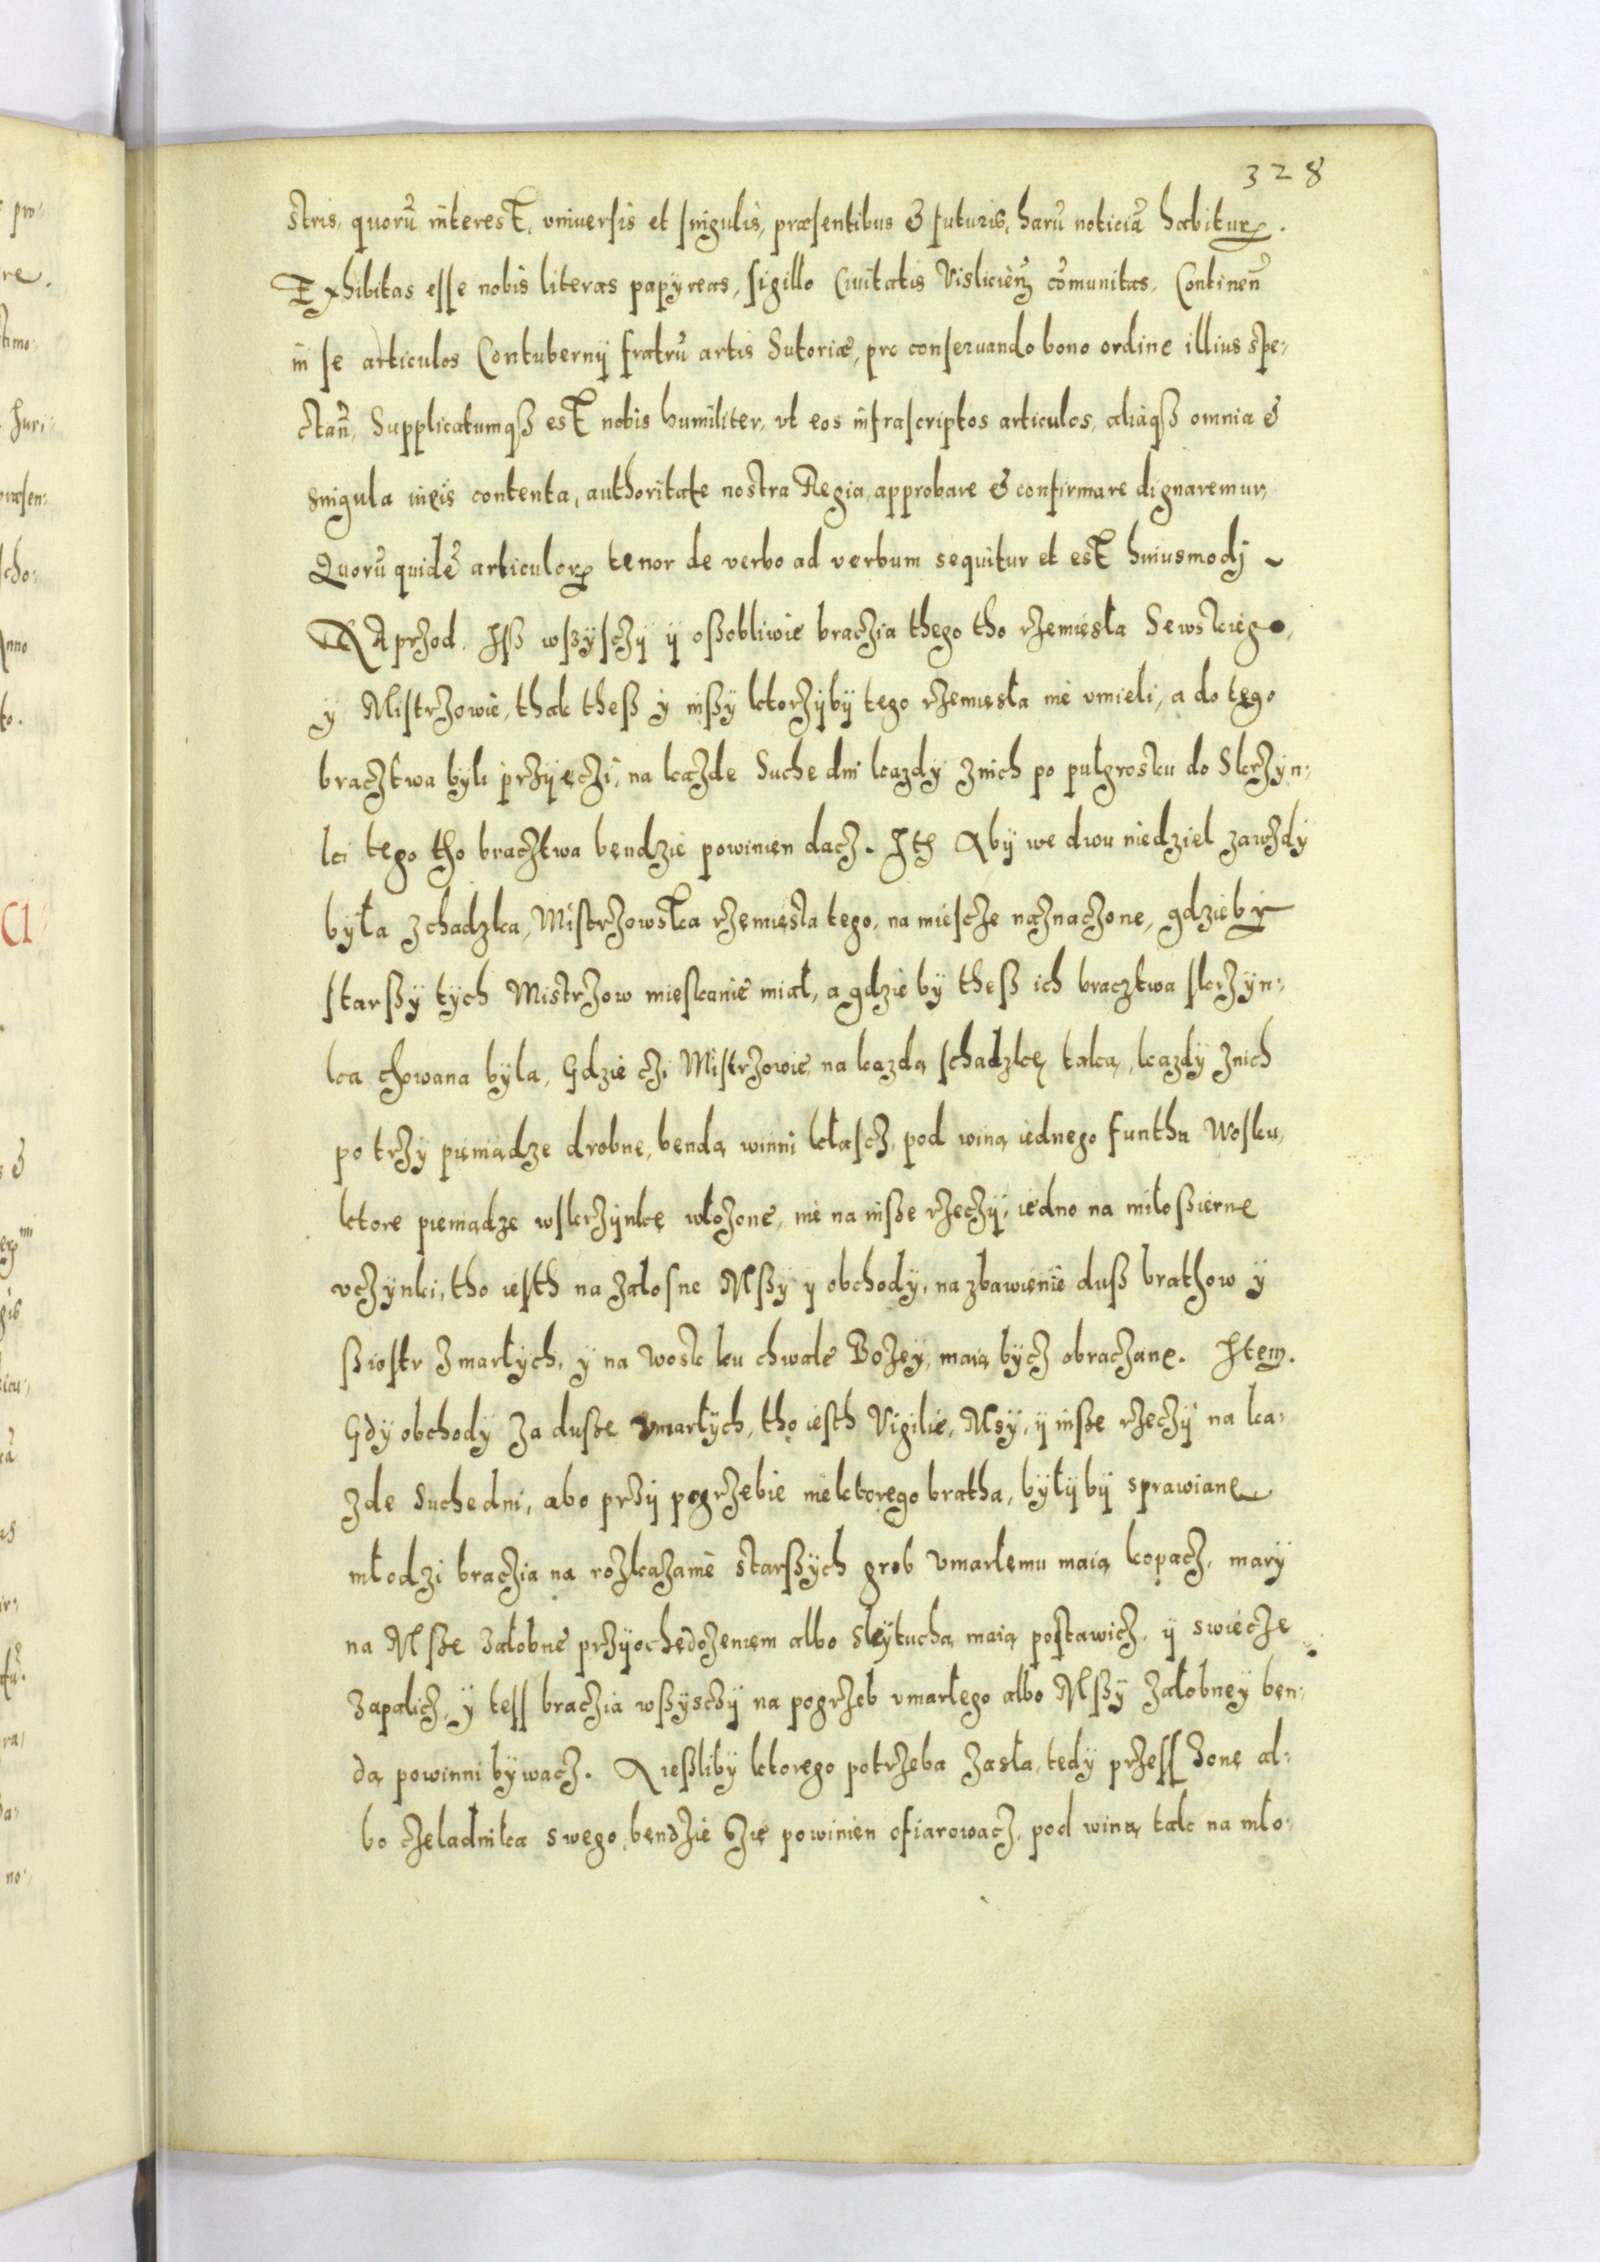 328
stris, quorũ interest, vniuersis et singulis, præsentibus & futuris, harũ noticiã habituꝝ.
Exhibitas esse nobis literas papyreas, sigillo Ciuitatis Visliciẽn cõmunitas, Continẽn
in se articulos Contubernij fratrũ artis Sutoriæ, pro conseruando bono ordine illius spe-
ctañ, Supplicatumqȝ est nobis humiliter, vt eos infrascriptos articulos, aliaqȝ omnia &
singula in eis contenta, authoritate nostra Regia, approbare & confirmare dignaremur,
Quorũ quidẽ articuloꝝ tenor de verbo ad verbum sequitur et est huiusmodj ~
NAprzod. Iß wßÿsczÿ ÿ oßobliwie braczia thego tho rzemiesła Sewskiego,
ÿ Mistrzowie, thak theß ÿ inßÿ ktorzÿbÿ tego rzemiesła nie vmieli, a do tego
braczstwa bÿli przÿięczi, na kazde Suche dni kazdÿ znich po pułgrosku do Skrzÿn-
ki tego tho bracztwa bendzie powinien dacz. Itẽ Abÿ we dwu niedziel zawzdÿ
bÿła zchadzka, Mistrzowska rzemiesła tego, na miescze naznaczone, gdziebÿ
starßÿ tÿch Mistrzow mieskanie miał, a gdzie bÿ theß ich bracztwa skrzÿn-
ka chowana bÿla, Gdzie czi Mistrzowie, na kazdą schadzkę taką, kazdÿ znich
po trzÿ pieniądze drobne, bendą winni kłascz, pod winą iednego funthu Wosku,
ktore pieniądze wskrzÿnkę włozone, nie na inße rzeczÿ, iedno na miłoßierne
vczÿnki, tho iesth na załosne Mßÿ ÿ obchodÿ, na zbawienie duß brathow ÿ
ßiostr zmarłÿch, ÿ na Wosk ku chwale Bozeÿ, maią bÿcz obraczane. Item.
Gdÿ obchodÿ za duße vmarłÿch, tho iesth Vigilie, Msÿ, ÿ inße rzeczÿ na ka-
zde Suchedni, abo przÿ pogrzebie niektorego bratha, bÿłÿ bÿ sprawiane
młodzi braczia na rozkazanie starßÿch grob Vmarłemu maią kopacz, marÿ
na Mße załobne przÿochędozeniem albo Skÿtucha maią postawicz, ÿ swiecze
zapalicz, ÿ tess braczia wßÿsczÿ na pogrzeb vmarłego albo Mßÿ załobneÿ ben-
dą powinni bÿwacz. A ießlibÿ ktorego potrzeba zasła, tedÿ przess zonę al-
bo czeladnika swego, bendzie szie powinien ofiarowacz, pod winą tak na mło-